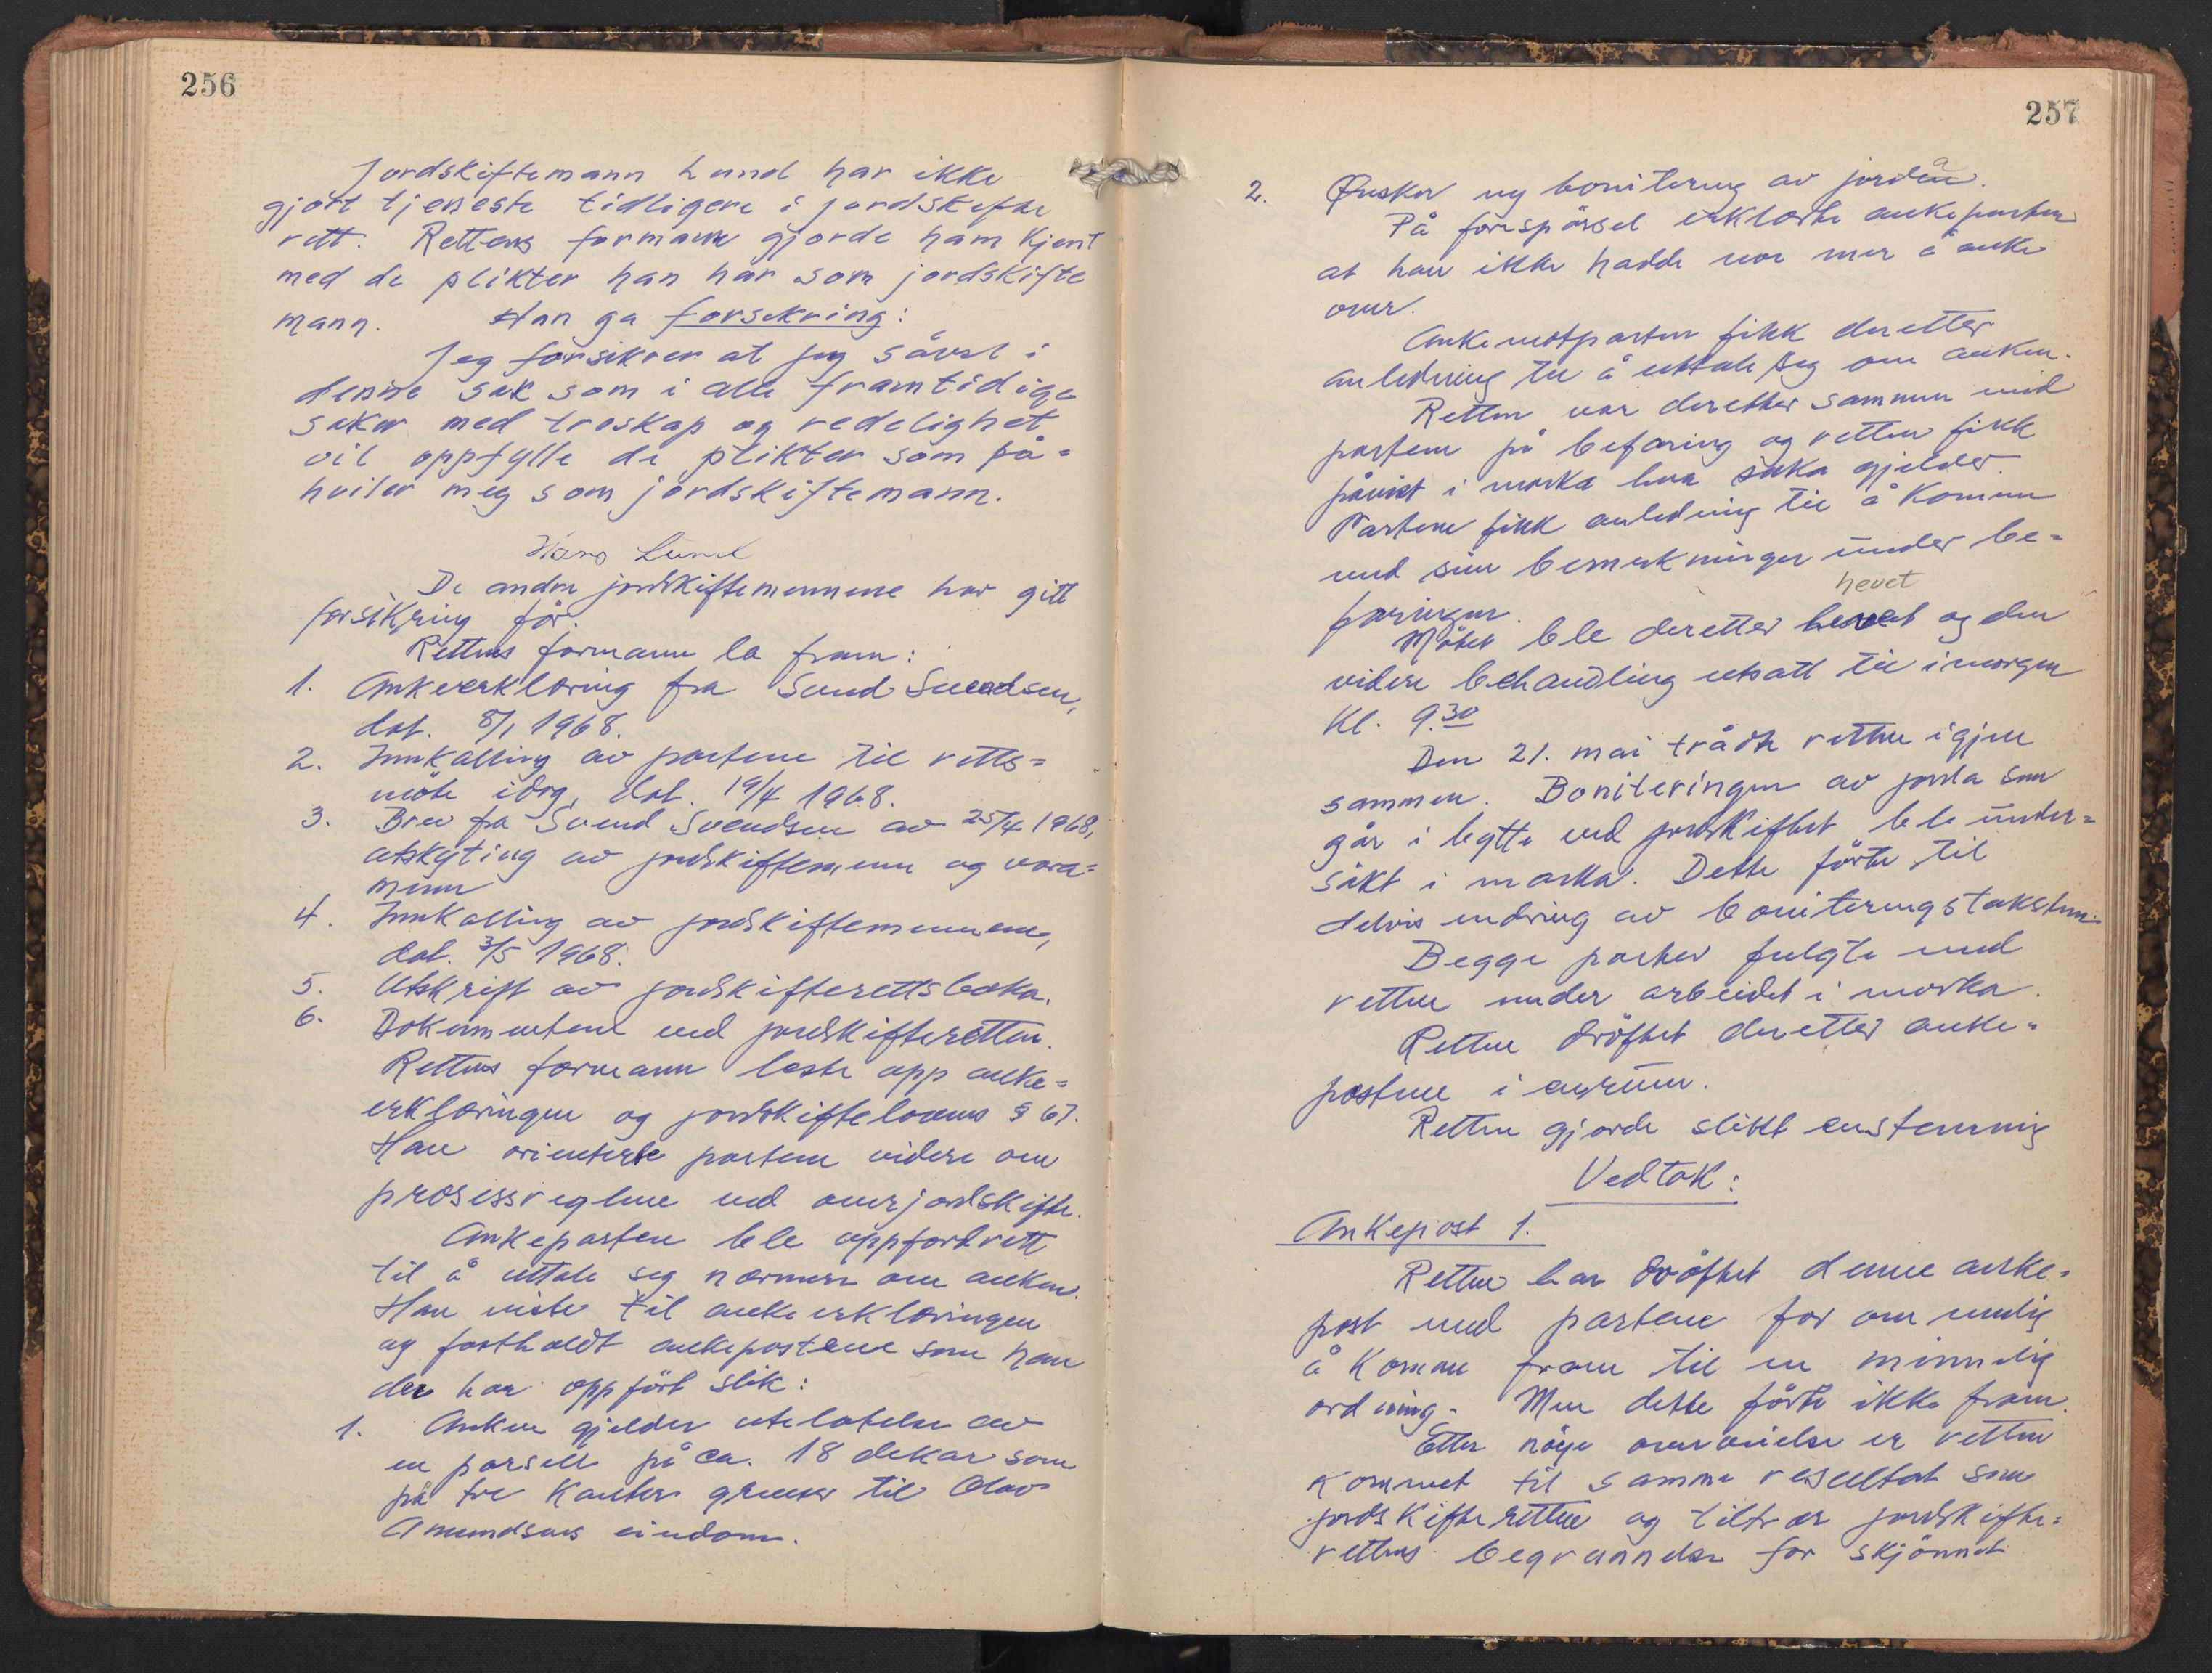 256
Jordskiftemann Lund har ikke
gjort tjeneste tidligere i jordskifte
rett. Rettens formann gjorde ham kjent
med de plikter han har som jordskifte
mann. Han ga forsikring:
Jeg forsikrer at jeg såvel i
denne sak som i alle framtidige
saker med troskap og redelighet
vil oppfylle de plikter som på=
hviler meg som jordskiftemann.
Hans Lund
De andre jordskiftemennene har gitt
forsikring før.
Rettens formann la fram:
1. Ankeerklæring fra Svend Svendsen,
dat. 8/1 1968.
2. Innkalling av partene til retts=
møte idag, dat. 19/4 1968.
3. Brev fra Svend Svendsen av 25/4 1968,
utskyting av jordskiftemenn og vara=
menn
4. Innkalling av jordskiftemennene,
dat. 3/5 1968.
5. Utskrift av jordskifterettsboka.
6. Dokumentene ved jordskifteretten.
Rettens formann leste opp anke=
erklæringen og jordskiftelovens § 67.
Han orienterte partene videre om
prosessreglene ved overjordskifte.
Ankeparten ble oppfordret
til å uttale seg nærmere om anken.
Han viste til ankeerklæringen
og fastholdt ankepostene som han
der har oppført slik:
1. Anken gjelder utelatelse av
en parsell på ca. 18 dekar som
på tre kanter grenser til Olav
Amundsens eiendom.
257
2. Ønsker ny bonitering av jorden. a
På forespørsel erklærte ankeparten
at han ikke hadde noe mer å anke
over.
Ankemotparten fikk deretter
anledning til å uttale seg om anken.
Retten var deretter sammen med
partene på befaring og retten fikk
påvist i marka hva saka gjelder.
Partene fikk anledning til å komme
med sine bemerkninger under be=
faringen.
hevet
Møtet ble deretter hevet og den
videre behandling utsatt til imorgen
kl. 9.30
Den 21. mai trådte retten igjen
sammen. Boniteringen av jorda som
går i bytte ved jordskiftet ble under=
søkt i marka. Dette førte til
delvis endring av boniteringstaksten.
Begge parter fulgte med
retten under arbeidet i marka.
Retten drøftet deretter anke=
postene i enrum.
Retten gjorde slikt enstemmig
Vedtak:
Ankepost 1.
Retten har drøftet denne anke=
post med partene for om mulig
å komme fram til en minnelig
ordning. Men dette førte ikke fram.
Etter nøye overveielse er retten
kommet til samme resultat som
jordskifteretten og tiltrer jordskifte=
rettens begrunnelse for skjønnet